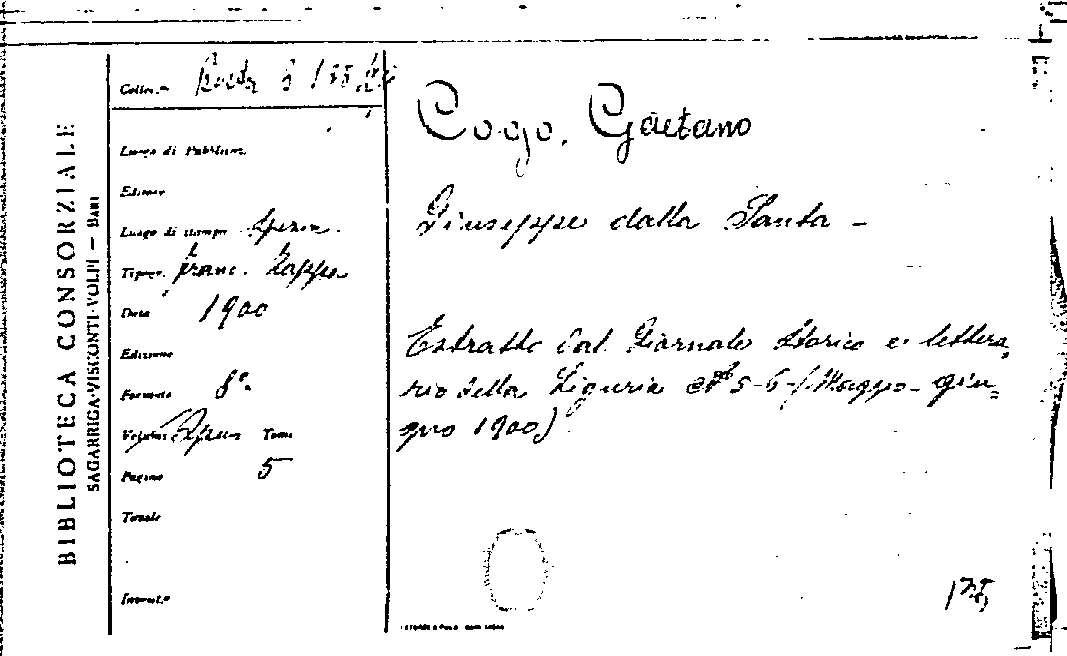 BIBLIOTECA CONSORZIALE
SAGARRIGA-VISCONTI-VOLPI — BARI
Colloc.ne
Luogo di Pubblicaz.
Editore
Luogo di stampa
Tipogr. Franc. Zappa
Data 1900
Edizione
Formato 8°
Volume Tomi
Pagine 5
Totale
Invent.
Cogo, Gaetano
Giuseppe dalla Santa -
Estratto dal Giornale Storico e lettera
rio della Liguria 5-6- (Maggio- giu
gno 1900)